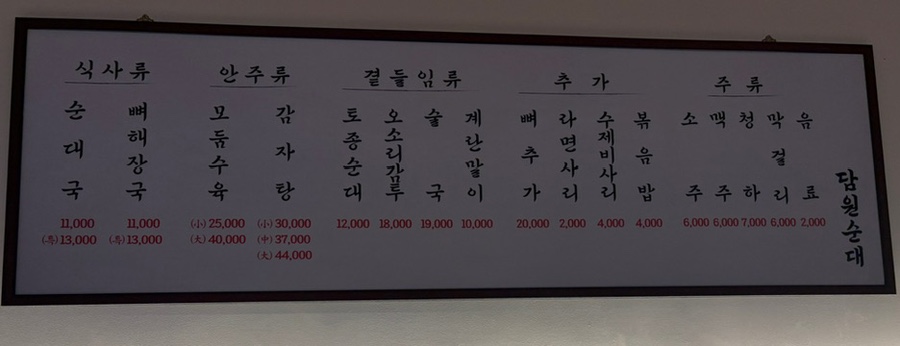 식사류
순대국
11,000
(특)13,000
뼈해장국
11,000
(특)13,000
안주류
모듬수육
(小)25,000
(大)40,000
감자탕
(小)30,000
(中)37,000
(大)44,000
곁들임류
토종순대
12,000
오소리감투
18,000
술국
19,000
계란말이
10,000
추가
뼈추가
20,000
라면사리
2,000
수제비사리
4,000
볶음밥
4,000
주류
소주
6,000
맥주
6,000
청하
7,000
막걸리
6,000
음료
2,000
담원순대